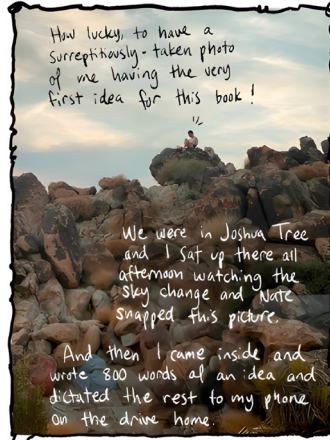 How lucky, to have a
surreptitiously-taken photo
of me having the very
first idea for this book!
We were in Joshua Tree
and I sat up there all
afternoon watching the
sky change and Nate
snapped this picture.
And then I came inside and
wrote 800 words of an idea and
dictated the rest to my phone
on the drive home.